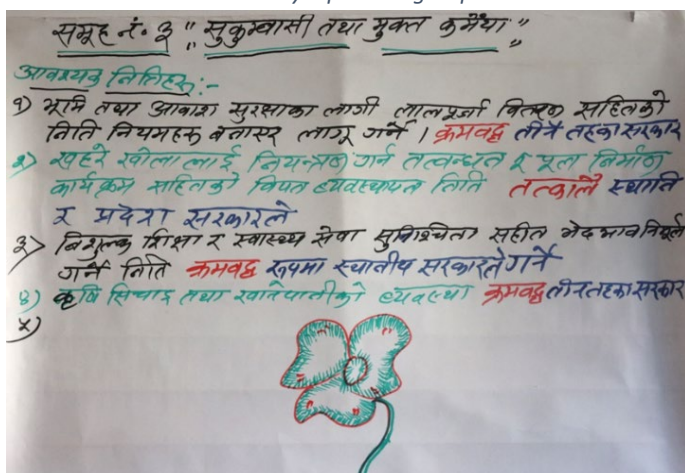 समूह नं. ३ " सुकुम्वासी तथा मुक्त कमैया "
आवश्यक नितिहरु :-
१) भूमि तथा आवाश सुरक्षाका लागी लालपूर्जा वितरण सहितको
निति नियमहरु बनाएर लागू गर्ने । क्रमवद्ध तीनै तहका सरकार
२) खहरे खोला लाई नियन्त्रण गर्न तत्वन्धन र पूल निर्माण
कार्यक्रम सहितको विपत व्यवस्थापन निति तत्कालै स्थानि
र प्रदेश सरकारले
३) निशुल्क शिक्षा र स्वास्थ्य सेवा सुनिश्चितता सहीत भेदभाव निर्मूल
गर्ने निति क्रमवद्ध रूपमा स्थानीय सरकारले गर्ने
४) कृषि सिचाइ तथा खानेपानीको व्यवस्था क्रमवद्ध तीनै तहका सरकार
५)